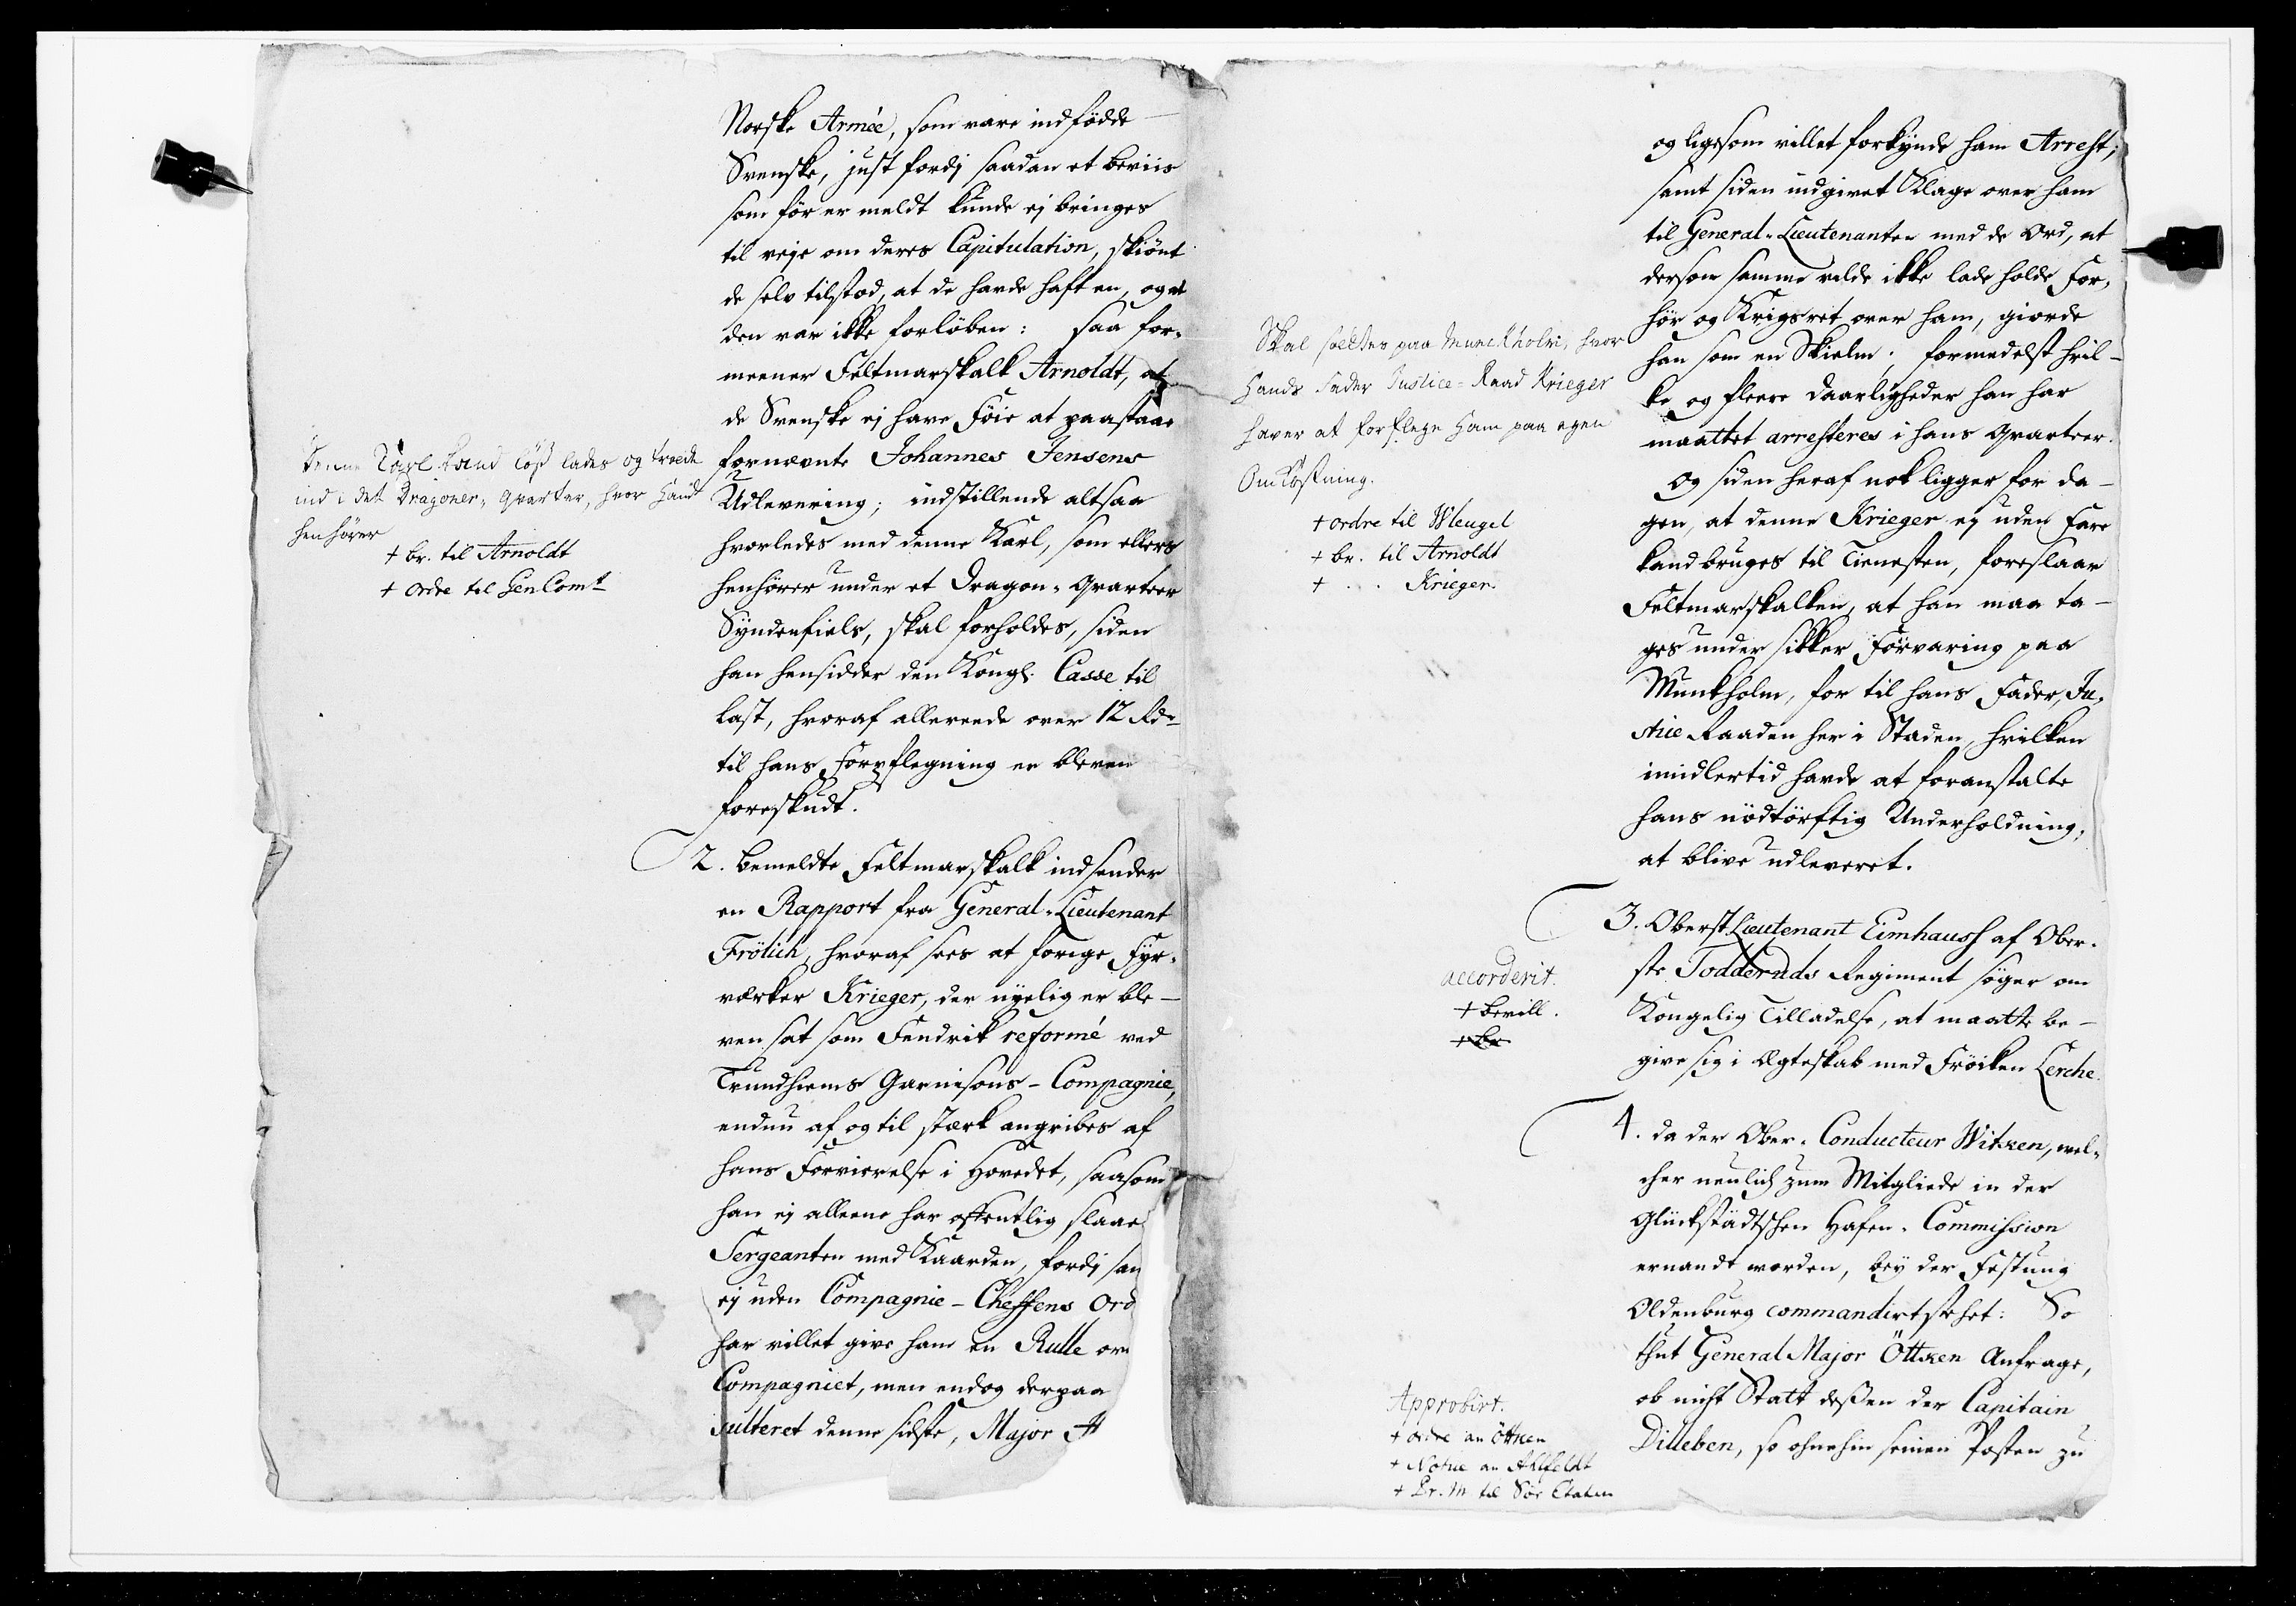 Norske Armée, som vare indfödde
Svenske, just fordj saadan et beviis
som för er meldt kunde ej bringes
til veje om deres Capitulation, skiönt
de selv tilstod, at de havde haft en, og at
den var ikke forlöben: saa for-
meener Feltmarskalk Arnoldt, at
de Svenske ej have Föie at paastaae
fornævnte Johannes Jensens
Udlevering; indstillende altsaa
hvorledes med denne Karl, som ellers
henhörer under et Dragon-Qvarteer
Syndenfiels, skal forholdes, siden
han hensidder den Kongl. Casse til
Last, hvoraf allereede over 12 Rdr
til hans Forpflegning er bleven
foreskudt.
Denne Karl Kand löß lades og træde
ind i det Dragoner-Qvarter, hvor Hand
henhörer
+ br. til Arnoldt
+ Ordre til GenComt
2. Bemeldte Feltmarskalk indsender
en Rapport fra General-Lieutenant
Frölich, hvoraf sees at forige Fyr-
verker Krieger, der nyelig er ble-
ven sat som Fendrik reformé ved
Trundhiems Garnisons-Compagnie,
endnu af og til stærk angribes af
hans Forvirelse i Hovedet, saasom
han ej alleene har offentlig slaae
Sergeanten med Kaarden, fordj san
ej uden Compagnie-Cheffens Ord
har villet give ham en Rulle ov
Compagniet, men endog derpaa
sulteret denne sidste, Major
og ligesom villet forkynde ham Arrest;
samt siden indgivet Klage over ham
til General-Lieutenanten med de Ord, at
dersom samme vilde ikke lade holde For-
hör og Krigsret over ham, giorde
han som en Skielm; formedelst hvil-
ke og fleere Daarligheder han har
maattet arresteres i hans Qvarteer.
Og siden heraf nok ligger for Da-
gen, at denne Krieger ej uden Fare
kand bruges til Tienesten, foreslaar
Feltmarskalken, at han maa ta-
ges under sikker Forvaring paa
Munkholm, for til hans Fader, Ju-
stice Raaden her i Staden, hvilken
imidlertid havde at foranstalte
hans nödtörftig Underholdning,
at blive udleveret.
Skal settes paa Munckholm, hvor
Hands Fader Justice-Raad Krieger
haver at forflege Ham paa egen
Omkostning.
+ ordre til Wleugel
+ br. til Arnoldt
+ . . Krieger.
3. OberstLieutenant Eimhauss af Ober-
ste Regiment söger om
Kongelig Tilladelse, at maatte be-
give sig i Ægteskab med Fröiken Lerche.
accorderit.
+ bevill.
+ br
4. Da der Ober-Conducteur Witken, wel-
cher neulich zum Mitgliede in der
Glückstädtschen Hafen-Commission
ernandt worden, bey der Festung
Oldenburg commandirt stehet: So
thut General Major Öttken Anfrage,
ob nicht Statt deßen der Capitain
Dilleben, so ohnehin seinen Posten zu
Approbirt.
+ ordre an Öttken
+ Notice an Ahlefeldt
+ Pr. M. til Söe Etaten